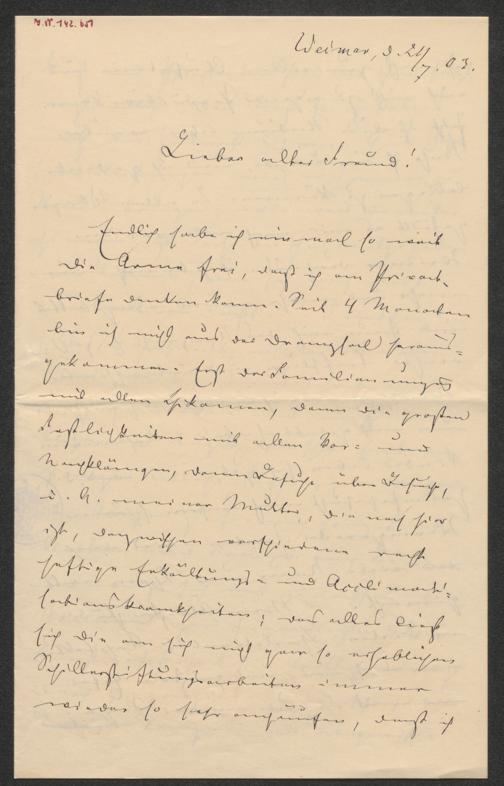 J.N. 142.651
Weimar, d. 21/7. 03.
Lieber alter Freund!
Endlich habe ich einmal so weit
die Arme frei, daß ich an Privat-
briefe denken kann. Seit 4 Monaten
bin ich nicht aus der Drangsal heraus=
gekommen. Erst der Familienumzug
mit allen Chikanen, dann die großen
Festlichkeiten mit allen Vor= und
Nachklängen, dann Besuche über Besuche,
u. A. meiner Mutter, die noch hier
ist, dazwischen verschiedene recht
heftige Erkältungs- und Acclimati=
sationskrankheiten; das alles ließ
sich die an sich nicht gar so erheblichen
Schillerstiftungsarbeiten immer
wieder so sehr anhäufen, daß ich